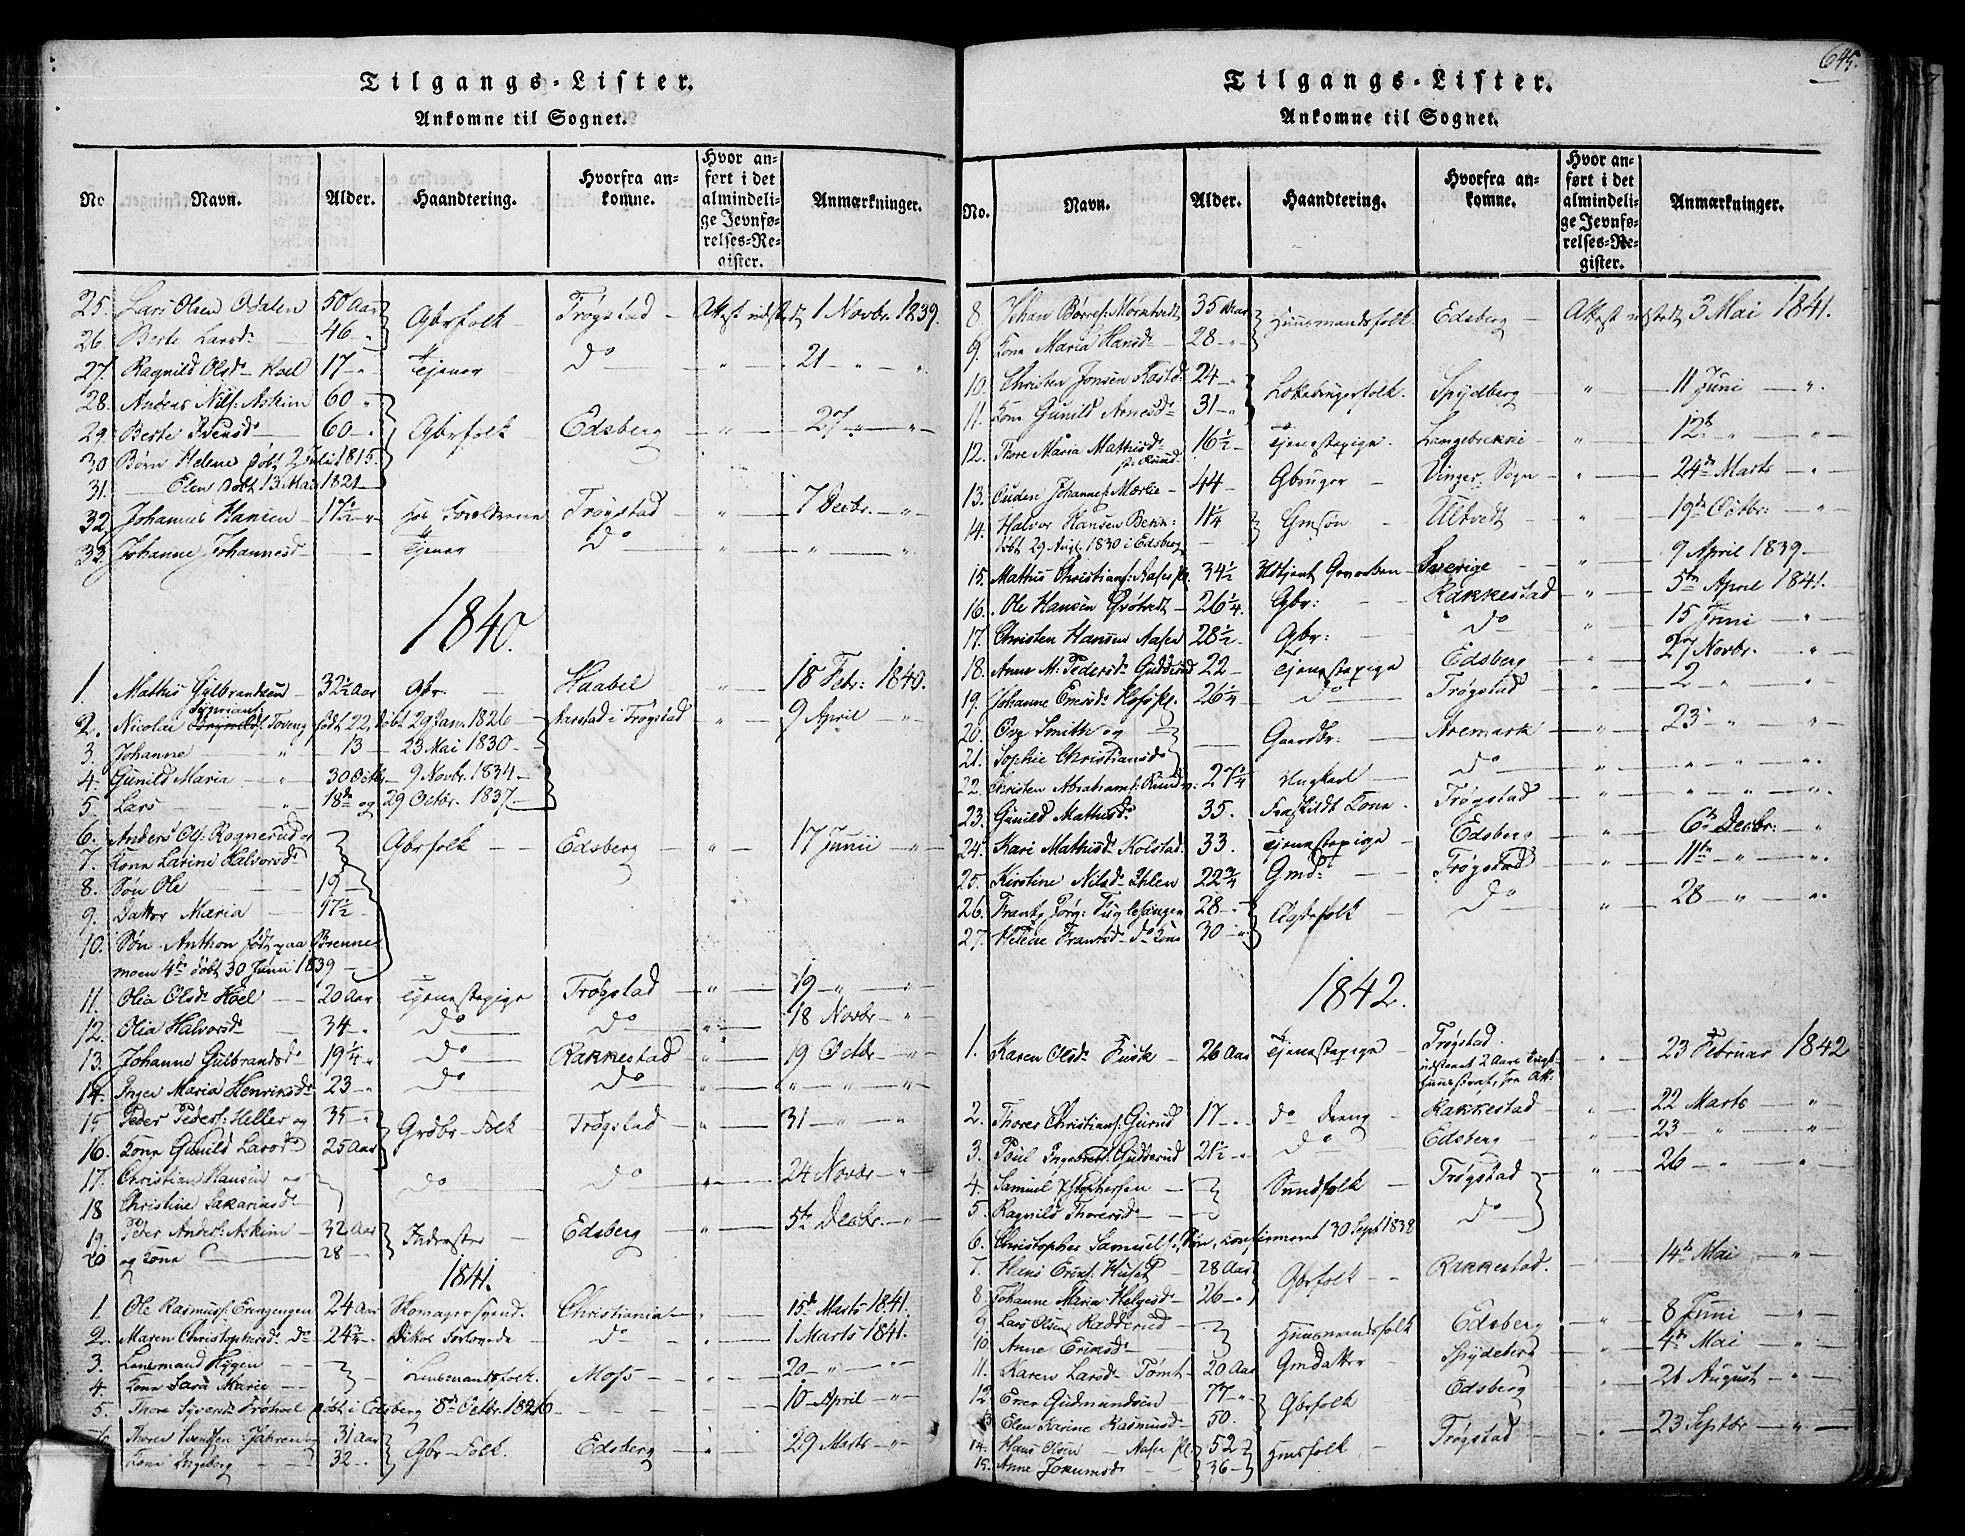 Tilgangs-Lister.
Ankomne til Sognet.
No Navn. Alder. Haandtering. Hvorfra ankomne. Hvor anført i det almindelige Jevnførelses-Register. Anmærkninger.
25. Lars Olsen Odalen 50 Aar Gbrfolk Trøgstad Attest udstedt 1 Novbr. 1839.
26. Berte Larsd. 46 "
27. Ragnild Olsd. Hoel 17 " Tjener Do " 21 " "
28. Anders Nils. Askim 60 "
29. Berte Svensd. 60 " Gbrfolk Edsberg " 27 " "
30. Børn Helene døbt 2 Juli 1815.
31. Elen døbt 13 Mai 1821
32. Johannes Hansen 17½ " hos Forældrene Trøgstad " 7 Decbr. "
33. Johanne Johannesd. Tjener Do " " "
1840.
1. Mathis Gulbrandsen 32½ Aar Gbr. Haabøl " 18 Febr: 1840.
2. Nicolai Toveng født 22, døbt 29 Jan. 1826 i Trøgstad " 9 April "
3. Johanne " 13 23 Mai 1830
4. Gunild Maria " 30 Octb. 9 Novbr. 1834
5. Lars " 18de og 29 Octbr. 1837.
6. Anders Ols: Rognerud og Gbrfolk Edsberg " 17 Junii "
7. Kone Larine Halvorsd.
8. Søn Ole 19
9. Datter Maria 17½
10. Søn Anthon født paa Brenne
moen 4de døbt 30 Junii 1839
11. Olia Olsd. Hoel 20 Aar Tjenestepige Trøgstad " 19 " "
12. Olia Halvorsd. 34 " Do Do " 18 Novbr. "
13. Johanne Gulbrandsd. 19¼ " Do Rakkestad " 19 Octbr. "
14. Inger Maria Henriksd. 23 " Do Do " " " "
15 Peder Peders: Heller og 35 Grdbr. Folk Trøgstad " 31 " "
16. Kone Gunild Larsd. 25 Aar
17. Christian Hansen og Do Do " 24 Novbr. "
18 Christine Sakariasd.
19. Peder Anders: Askim 32 Aar Inderster Edsberg " 5te Decbr. "
20 og Kone 28
1841.
1. Ole Rasmuss: Eringengen 24 Aar Skomagersvend. Christiania " 15de Marts 1841.
2. Maren Christophersd. Do 24½ Ditos Forlovede Do " 1 Marts 1841.
3. Lensmand Hygen Lensmandsfolk. Moss " 20 " "
4. Kone Sara Marie
5. Thore Syversd. døbt i Edsberg 8de Octbr. 1826 10 April "
6. Thorer Svendsen 31 Aar Gbr. Folk. Edsberg " 29 Marts "
Kone Ingeborg 32 "
645.
Tilgangs-Lister.
Ankomne til Sognet.
No. Navn. Alder. Haandtering. Hvorfra ankomne. Hvor anført i det almindelige Jevnførelses-Register. Anmærkninger.
8. Johan Børres: 35 Aar Huusmandsfolk. Edsberg Attest udstedt 3 Mai 1841.
9. Kone Maria Hansd. 28 "
10. Christen Jonsen 24 " Spydberg " 11 Juni "
11. Kone Gunild Arnesd. 31 "
12. Thore Maria Mathisd. 16½ Tjenestepige. " 12te " "
13. Ouden Johannes: Mørlie 44 Gbruger Vinger Sogn " 24de Marts "
14. Halvor Hansen 11¼ Gmsøn " 19de Octbr: "
døbt 29 Aug. 1830 i Edsberg
15. Mathis Christians: Aasepl. 34½ Sverige " 9 April 1839
16. Ole Hansen 26¼ Gbr: Rakkestad " 5te April 1841.
17. Christen Hansen Aasen 28½ Gbr: Do " 15 Juni "
18. Anne M: Pedersd. Gudderud 22 Tjenestepige Edsberg " 27 Novbr. "
19. Johanne 26¼ Do Trøgstad " 2 " "
20. Ove Smith og Gaardbr. Aremark " 23 " "
21. Sophie Christiansd. Do " " "
22. Christen Abrahams: 27¾ Ungkarl Trøgstad " " "
23. Gunild Mathisd. 35. Fraskildt Kone
24. Kari Mathisd. Kolstad 33. Tjenestepige Edsberg " 6te Decbr: "
25. Kirstine Nilsd. Ihlen 22¾ Gmd. Trøgstad " 11te " "
26. Frantz Jørg: Fuglesangen 28 " Do " 28 " "
27. Helene Frantsd. Do Kone 30 "
1842.
1. Karen Olsd. 26 Aar Tjenestepige Trøgstad. " 23 Februar 1842
udstaaet 2 Aars Tugt-
huusstraf,
2. Thorer Christians: Gurud 17 " Do Dreng Rakkestad " 22 Marts "
3. Poul Ingebret: Gudderud 21½ " Do Edsberg " 23 " "
4. Samuel Trøgstad " 26 " "
5. Ragnild Thorersd. Do
6. Christopher Samuels: Søn, confirmeret 30 Sept. 1838
7. Hans Eriks: Huset 28 Aar Gbrfolk Rakkestad. " 14de Mai "
8. Johanne Maria Helgesd. 26 "
9. Lars Olsen Radderud Huusmandsfolk Edsberg " 8 Juni "
10. Anne Eriksd. Spydeberg " 4de Mai "
11. Karen Larsd. Tømt 20 Aar Gmdatter
12. Ever Gudmundsen 77 " Gbrfolk Edsberg " 21 August "
13 Elen Karine Rasmusd. 50.
14. Hans Olsen Aasen pl. 52 Hmsfolk Trøgstad " 23 Septbr "
15. Anne Jokumsd. 36